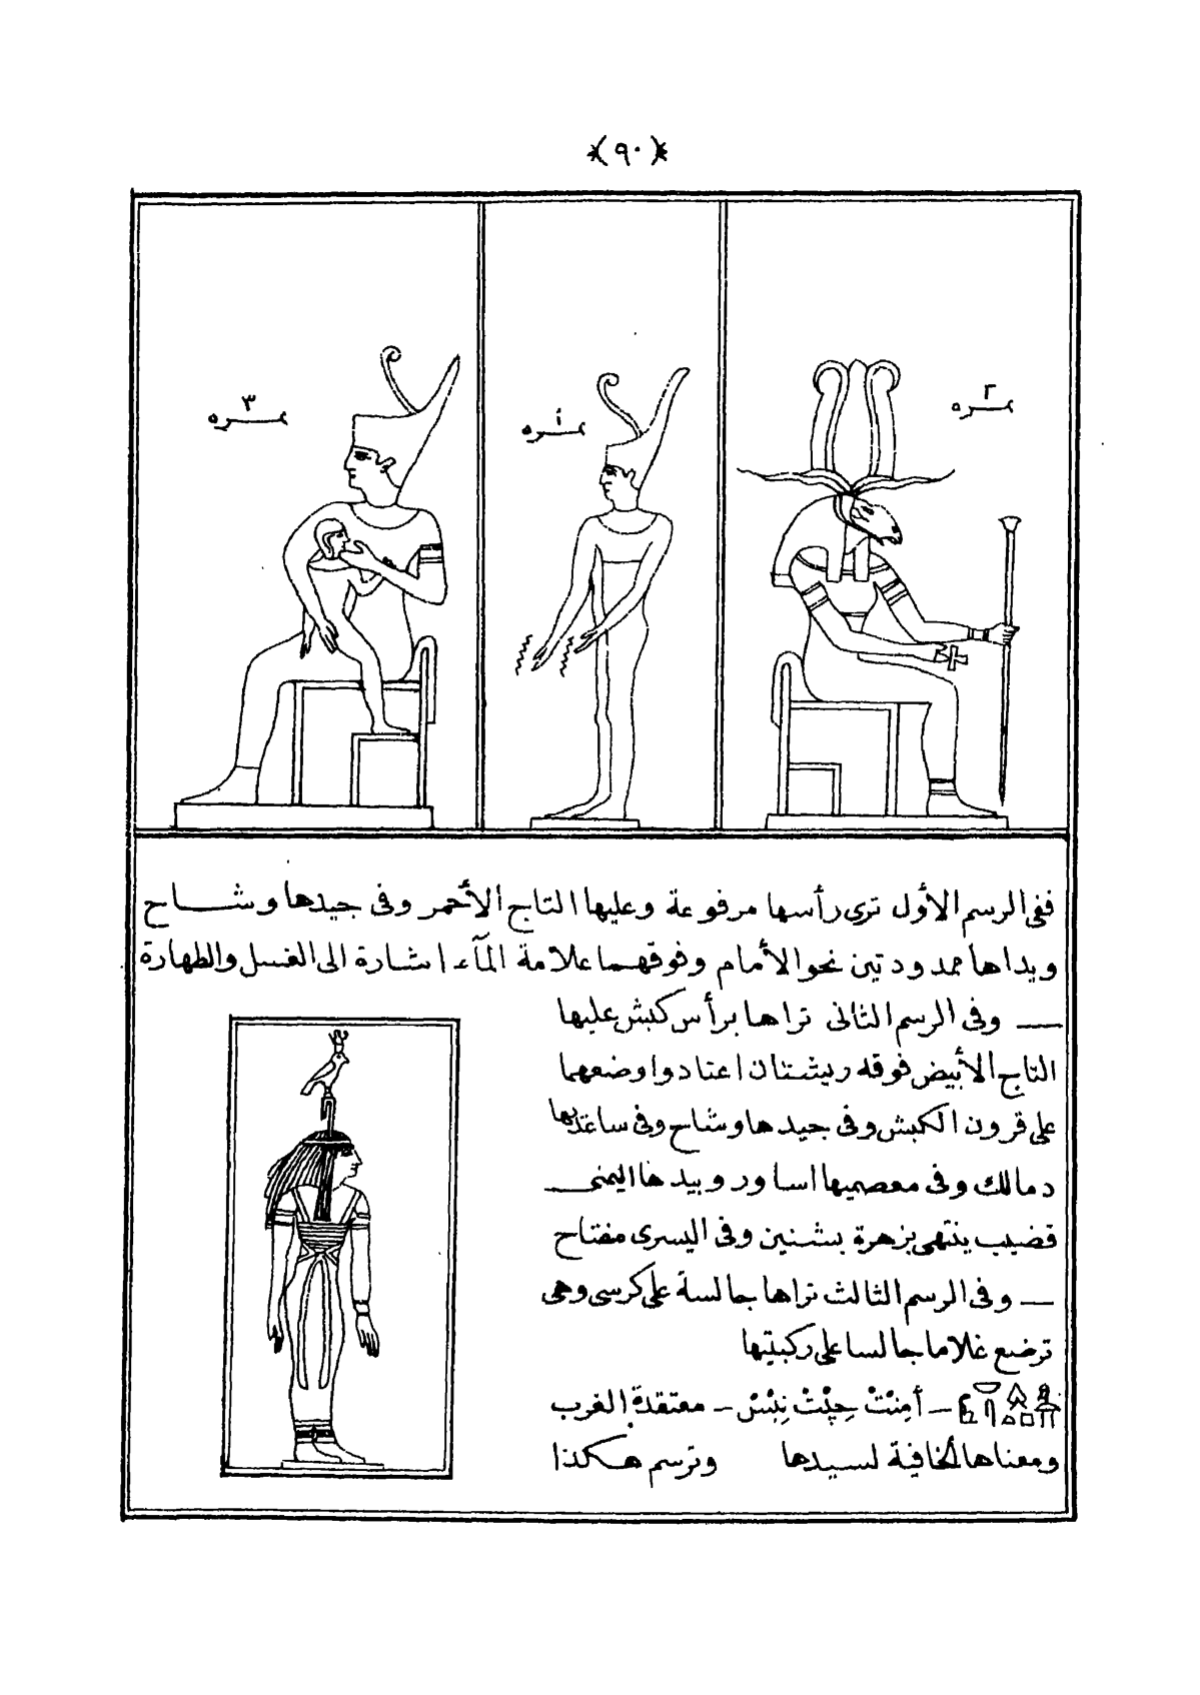 ﴿٩٠﴾
نمره ٢
نمره ١
نمره ٣
ففى الرسم الأول ترى رأسها مرفوعة وعليها التاج الأحمر وفى جيدها وشاح
ويداها ممدودتين نحو الأمام وفوقهما علامة المآء اشارة الى الغسل والطهارة
— وفى الرسم الثانى تراها برأس كبش عليها
التاج الأبيض فوقه ريشتان اعتادوا وضعهما
على قرون الكبش وفى جيدها وشاح وفى ساعديها
دمالك وفى معصميها اساور وبيدها اليمنى
قضيب ينتهى بزهرة بشنين وفى اليسرى مفتاح
— وفى الرسم الثالث تراها جالسة على كرسى وهى
ترضع غلاما جالسا على ركبتيها
— أمِنْتْ حِپْتْ نِبْسْ — معتقدة الغرب
ومعناها الخافية لسيدها وترسم هكذا